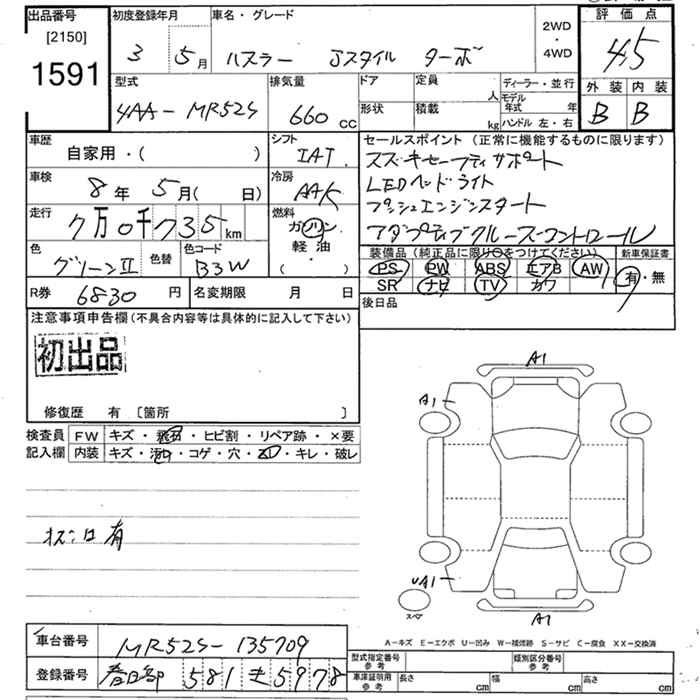 出品番号
[2150]
1591
初度登録年月
3 5月
車名・グレード
ハスラー Jスタイル ターボ
2WD
・
4WD
評価点
4.5
外装 内装
B B
型式
4AA-MR52S
排気量
660 cc
ドア
形状
定員
人
積載
kg
ディーラー・並行
モデル年式 年
ハンドル 左・右
車歴
自家用・( )
シフト
IAT
車検
8年 5月( 日)
冷房
AAC
走行
7万0千735km
燃料
ガソリン
軽油
・
( )
色
グリーンII
色替
色コード
B3W
R券 6830 円
名変期限 月 日
セールスポイント(正常に機能するものに限ります)
スズキセーフティサポート
LEDヘッドライト
プッシュエンジンスタート
アダプティブクルーズコントロール
装備品(純正品に限り○をつけてください)
PS PW ABS エアB AW
SR ナビ TV カワ
新車保証書
有・無
後日品
注意事項申告欄(不具合内容等は具体的に記入して下さい)
初出品
修復歴 有 〔箇所 〕
検査員記入欄
FW キズ・飛石・ヒビ割・リペア跡・×要
内装 キズ・汚れ・コゲ・穴・・キレ・破レ
有
A1
A1
A1
A1
スペア
A-キズ E-エクボ U-凹み W-補修跡 S-サビ C-腐食 XX-交換済
車台番号 MR52S-135709
登録番号 春日部 581 5978
型式指定番号参考
類別区分番号参考
車庫証明用参考 長さ cm 幅 cm 高さ cm